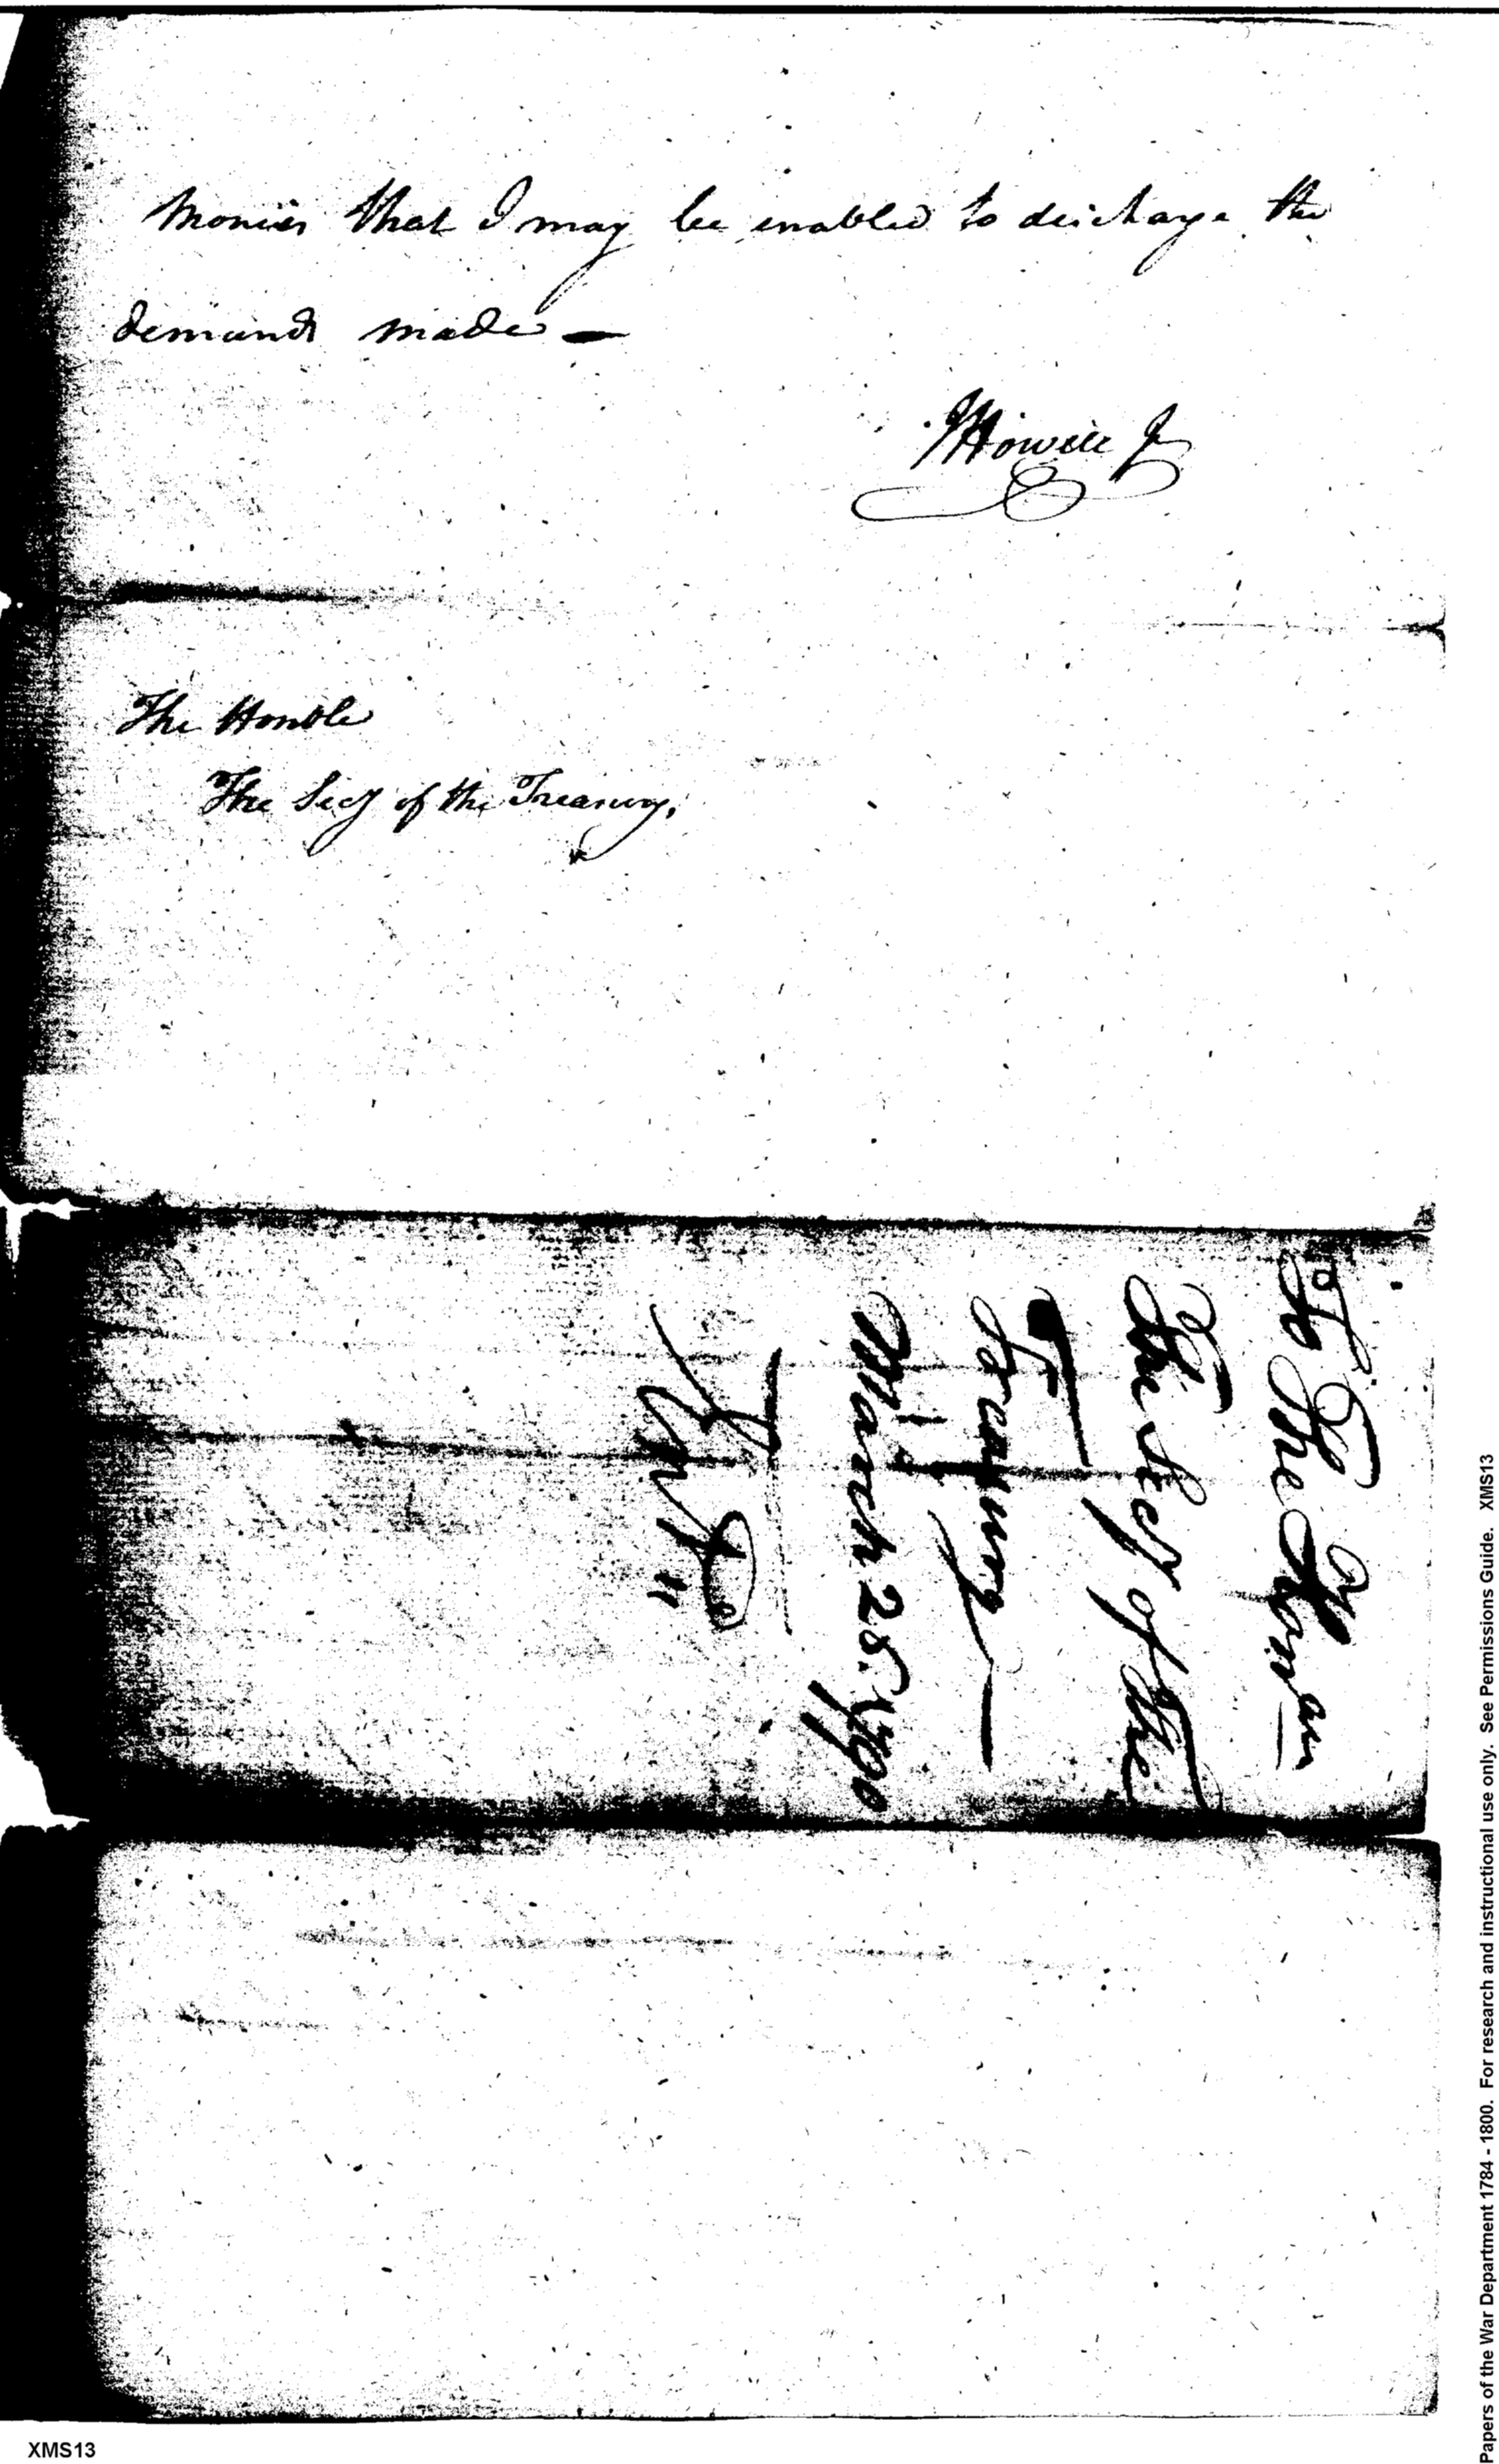 Monies that I may be enabled to discharge the
demands made —
JHowell Jr
The Honble
The Secy of the Treasury,
To The Honble
The Secy of the
Treasury —
March 28. 1790
XMS13
Papers of the War Department 1784 - 1800. For research and instructional use only. See Permissions Guide. XMS13